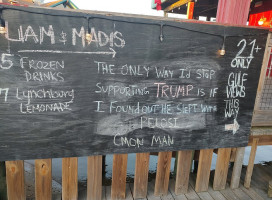 LIAM & MADIS
5 FROZEN DRINKS
7 Lynchburg LEMONADE
THE ONLY WAY I'd STOP
SUPPORTING TRUMP IS IF
I FOUND OUT HE SLEPT WITH
PELOSI
C'MON MAN
21+
ONLY
GULF
VIEWS
THIS
WAY